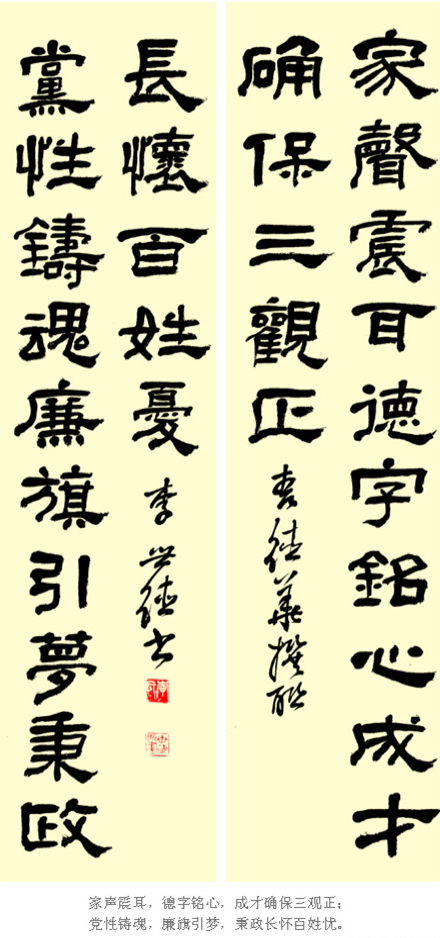 家聲震耳德字銘心成才
确保三觀正
撰联
黨性鑄魂廉旗引夢秉政
長懷百姓憂
李
书
家声震耳，德字铭心，成才确保三观正；
党性铸魂，廉旗引梦，秉政长怀百姓忧。